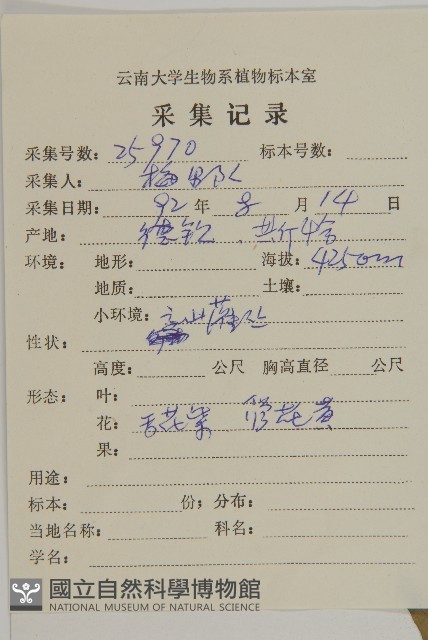 云南大学生物系植物标本室
采集记录
采集号数: 25970 标本号数:
采集人:
采集日期: 92 年 8 月 14 日
产地: 德钦、
环境: 地形: 海拔: 4250m
地质: 土壤:
小环境: 高山
性状:
高度: 公尺 胸高直径 公尺
形态: 叶:
花: 舌花紫 管花黄
果:
用途:
标本: 份; 分布:
当地名称: 科名:
学名:
國立自然科學博物館
NATIONAL MUSEUM OF NATURAL SCIENCE